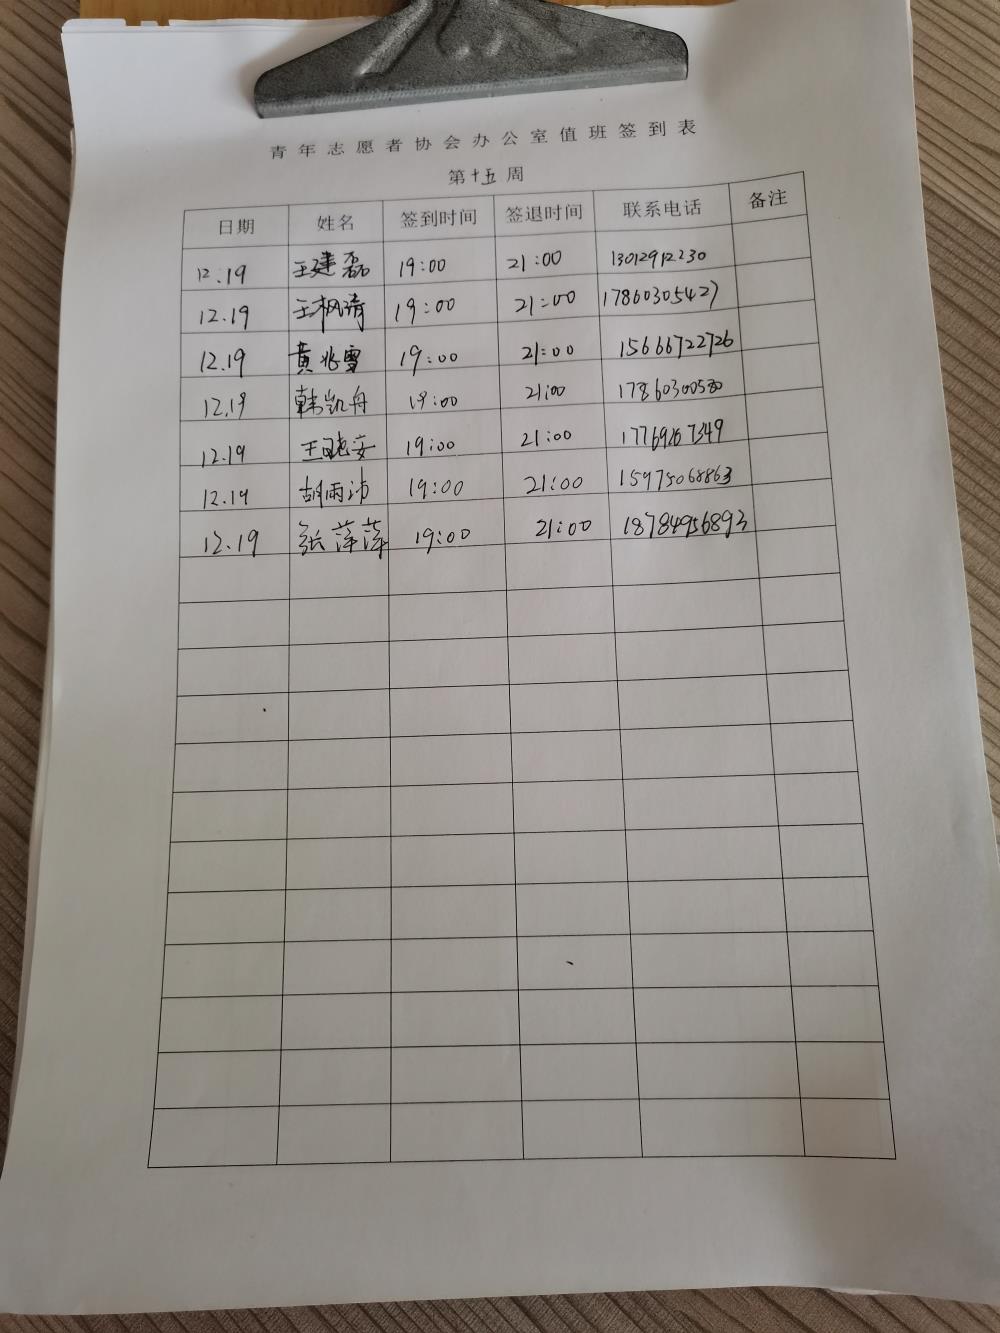 青年志愿者协会办公室值班签到表
第十五周
日期 姓名 签到时间 签退时间 联系电话 备注
12.19 王建磊 19:00 21:00 13012912230
12.19 王枫清 19:00 21:00 17860305427
12.19 黄兆雪 19:00 21:00 15666722726
12.19 韩凯舟 19:00 21:00 17860300580
12.19 王 安 19:00 21:00 17769267349
12.19 胡雨沛 19:00 21:00 15975068863
12.19 张萍萍 19:00 21:00 18784956893